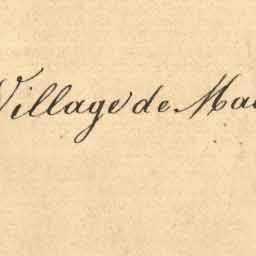 Village de Ma